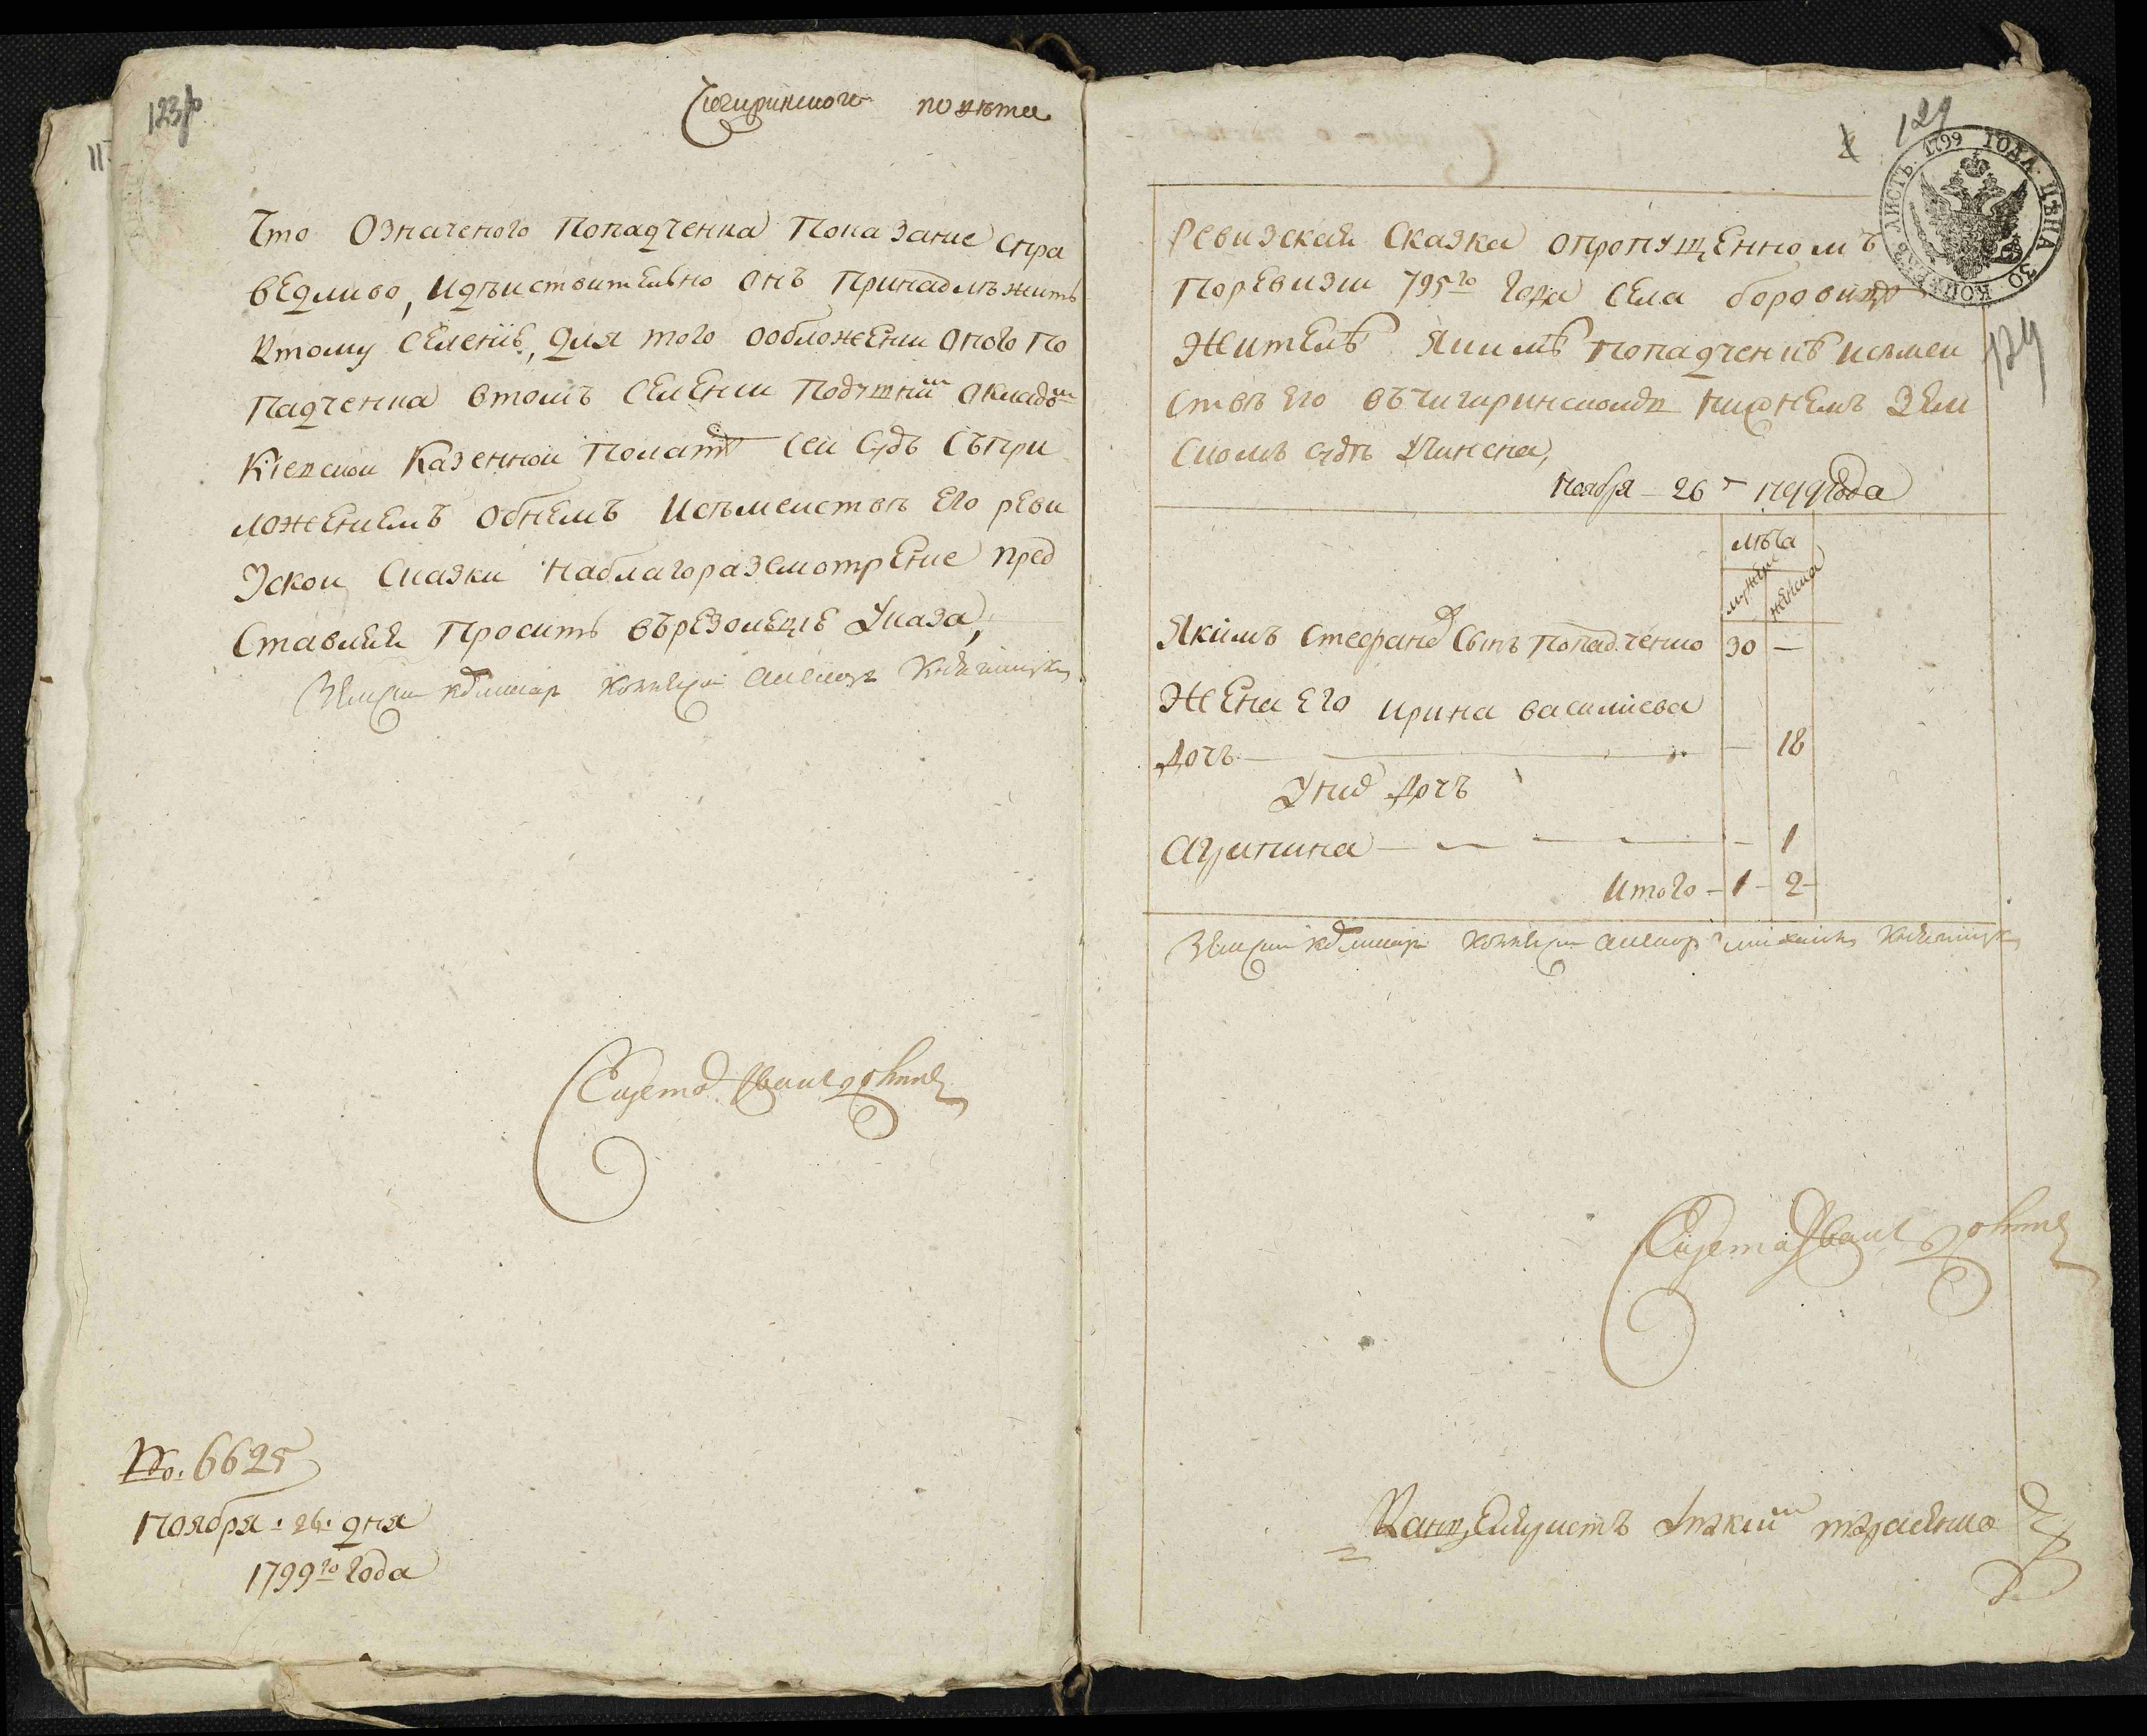 123
Чигиринского повѣта
Что Означеного Попадченка Показание спра
ведливо, идѣиствително онъ Принадлѣжить
ктому Селенію, Для того ообложении оного По
падченка втомъ Селении Подушний окладъ
Кіевскои Казенной Полатѣ Сеи Судъ Съпри
ложениемъ объ немъ исѣмеиствѣ Его реви
зскои Сказки наблагоразсмотрЕние пред
ставляя Проситъ върезолюціе Указа,
Земски комисар
No. 6625
Ноября 26 дня
1799го года
124
ЛИСТЪ. 1799 ГОДА. ЦѢНА 30 КОПѢЕКЪ
Ревизская Сказка опропущенномъ
Поревизии 795го Года Села боровици
Жителѣ Якимѣ Попадченкѣ исѣмеи
ствѣ Его въчигиринскомъ нижнемъ Зем
скомъ судѣ Писана,
124
Ноября 26 1799 Года
лѣта
мужеск
женска
Якимъ Стефановъ Сынъ Попадченко 30 —
Жена Его Ирина василиева
Дочь — 18
Уних Дочь
Агрипина — 1
Итого — 1 — 2
Земски комисар
Канцеляристъ